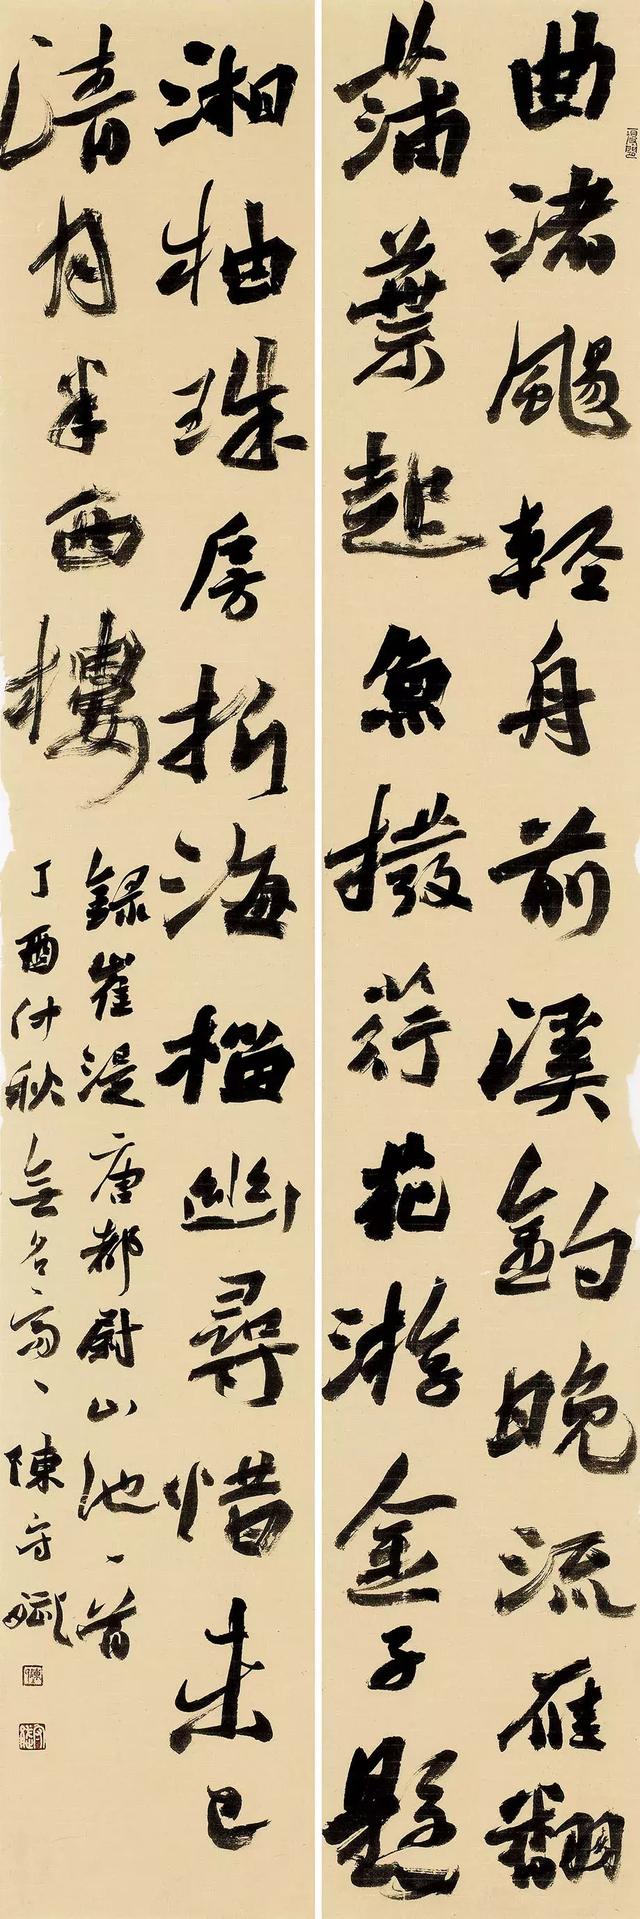 曲渚颺輕舟前溪釣晚流雁翻
蒲葉起魚撥荇花游金子懸
湘柚珠房折海榴幽尋惜未已
清月半西樓
錄崔湜唐都尉山池一首
丁酉仲秋無名齋陳守